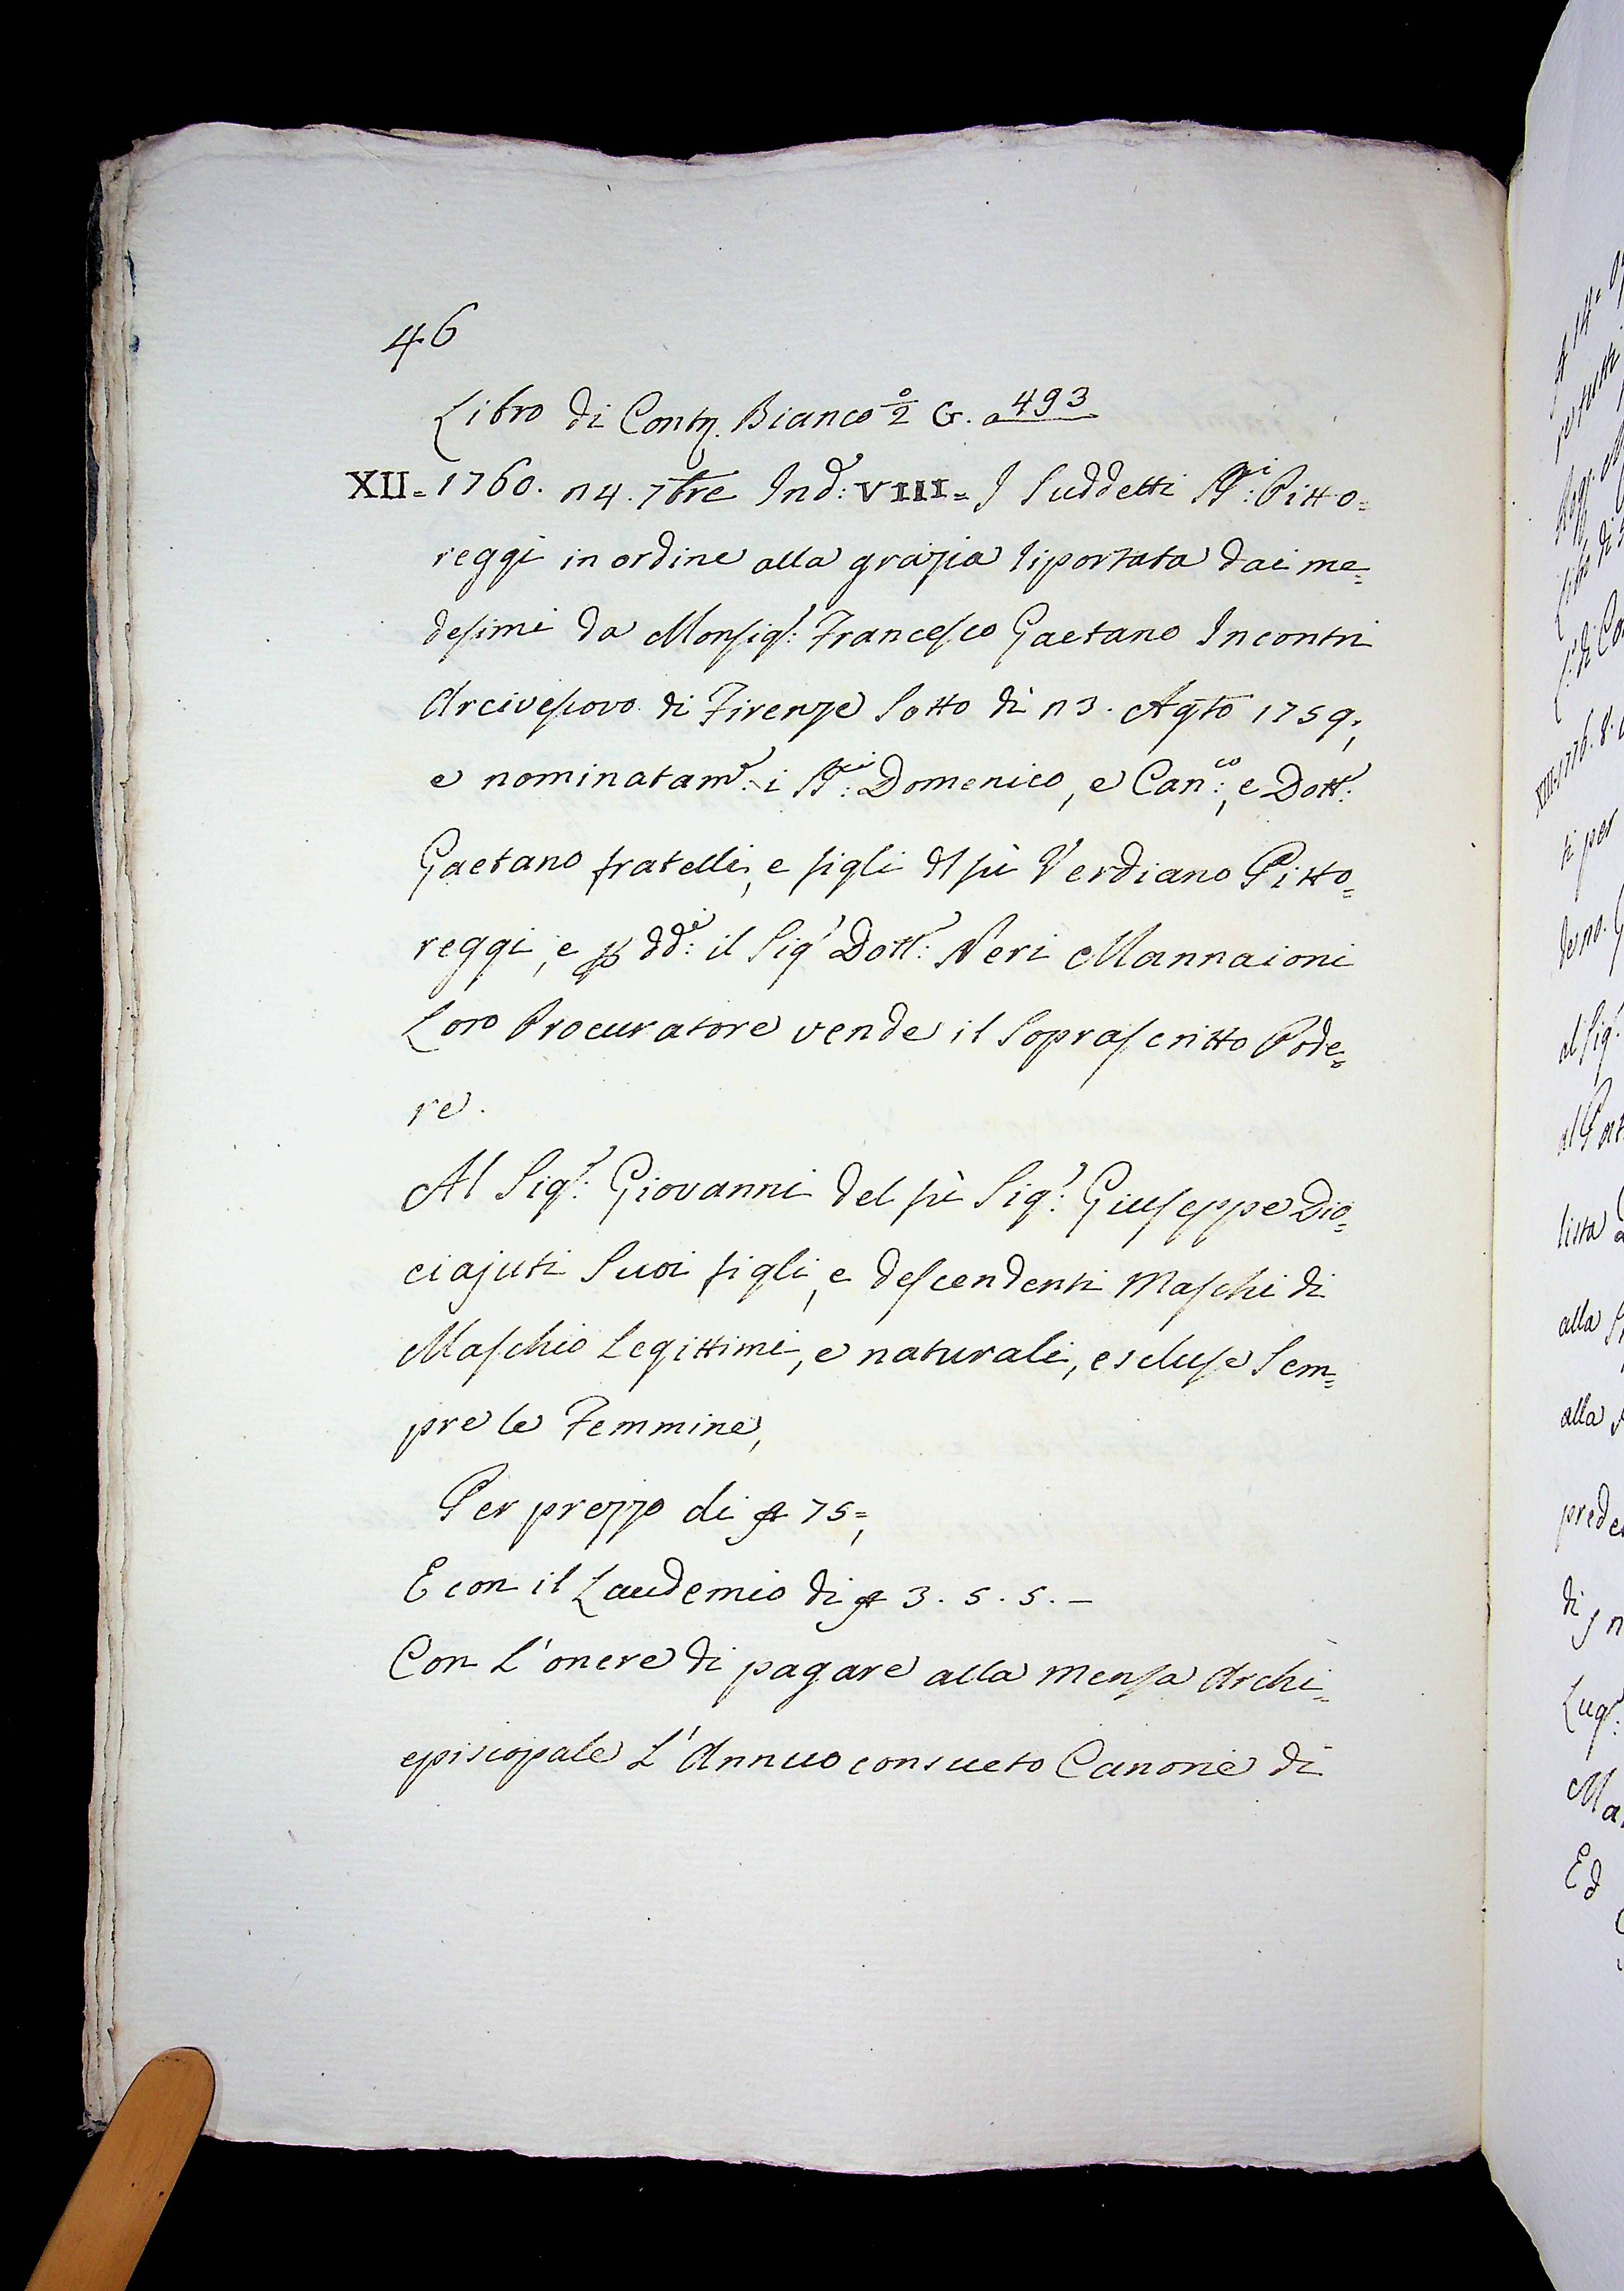 46
Libro di Contr. Bianco 2° G. a 493
XII = 1760. 14. 7bre Ind: VIII = I Suddetti SSri: Pitto=
reggi in ordine alla grazia riportata dai me=
desimi da Monsigr: Francesco Gaetano Incontri
Arcivescovo di Firenze Sotto dì 13. Agto 1759;
e nominatame: i SSri: Domenico, e Canco:, e Dottr:
Gaetano fratelli, e figli dl fù Verdiano Pitto=
reggi, e p ddi: il Sigr Dottr: Neri Mannaioni
Loro Procuratore vende il Soprascritto Pode=
re.
Al Sigr: Giovanni del fù Sigr: Giuseppe Dio=
ciajuti Suoi figli, e descendenti Maschi di
Maschio Legittimi, e naturali, escluse Sem=
pre le Femmine,
Per prezzo di 75=,
E con il Laudemio di 3. 5. 5. –
Con L'onere di pagare alla Mensa Archi=
episcopale L'Annuo consueto Canone di